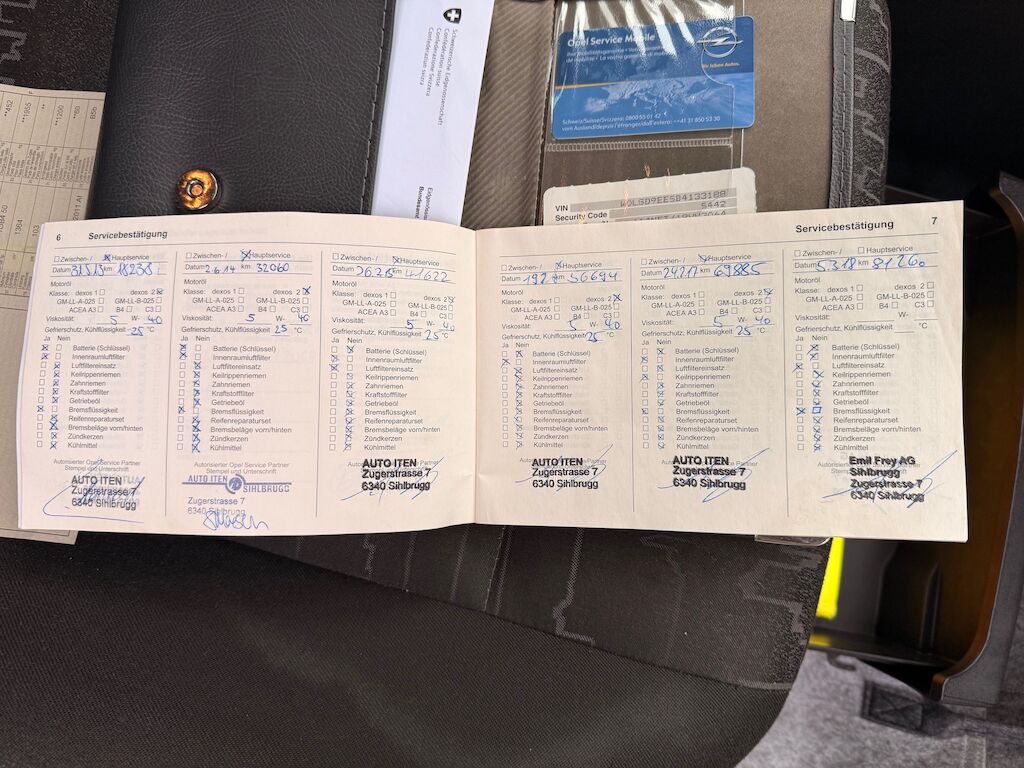 Schweizerische Eidgenossenschaft
Confédération suisse
Confederazione Svizzera
Confederaziun svizra
Opel Service Mobile
Wir leben Autos.
Schweiz/Suisse/Svizzera: 0800 55 01 42
vom Ausland/depuis l'étranger/dall'estero: ++41 31 850 53 30
VIN
Security Code 5442
6 Servicebestätigung
Zwischen-/ Hauptservice
Datum km
Motoröl
Klasse: dexos 1 dexos 2
GM-LL-A-025 GM-LL-B-025
ACEA A3 B4 C3
Viskosität 5 W- 40
Gefrierschutz, Kühlflüssigkeit -25 °C
Ja Nein
Batterie (Schlüssel)
Innenraumluftfilter
Luftfiltereinsatz
Keilrippenriemen
Zahnriemen
Kraftstofffilter
Getriebeöl
Bremsflüssigkeit
Reifenreparaturset
Bremsbeläge vorn/hinten
Zündkerzen
Kühlmittel
Autorisierter Opel Service Partner
Stempel und Unterschrift
AUTO ITEN
Zugerstrasse 7
6340 Sihlbrugg
Zwischen-/ Hauptservice
Datum 2.6.14 km 32060
Motoröl
Klasse: dexos 1 dexos 2
GM-LL-A-025 GM-LL-B-025
ACEA A3 B4 C3
Viskosität 5 W- 40
Gefrierschutz, Kühlflüssigkeit 25 °C
Ja Nein
Batterie (Schlüssel)
Innenraumluftfilter
Luftfiltereinsatz
Keilrippenriemen
Zahnriemen
Kraftstofffilter
Getriebeöl
Bremsflüssigkeit
Reifenreparaturset
Bremsbeläge vorn/hinten
Zündkerzen
Kühlmittel
Autorisierter Opel Service Partner
Stempel und Unterschrift
AUTO ITEN SIHLBRUGG
Zugerstrasse 7
6340 Sihlbrugg
Zwischen-/ Hauptservice
Datum km 41622
Motoröl
Klasse: dexos 1 dexos 2
GM-LL-A-025 GM-LL-B-025
ACEA A3 B4 C3
Viskosität 5 W- 40
Gefrierschutz, Kühlflüssigkeit 25 °C
Ja Nein
Batterie (Schlüssel)
Innenraumluftfilter
Luftfiltereinsatz
Keilrippenriemen
Zahnriemen
Kraftstofffilter
Getriebeöl
Bremsflüssigkeit
Reifenreparaturset
Bremsbeläge vorn/hinten
Zündkerzen
Kühlmittel
AUTO ITEN
Zugerstrasse 7
6340 Sihlbrugg
Servicebestätigung 7
Zwischen-/ Hauptservice
Datum km 56694
Motoröl
Klasse: dexos 1 dexos 2
GM-LL-A-025 GM-LL-B-025
ACEA A3 B4 C3
Viskosität 5 W- 40
Gefrierschutz, Kühlflüssigkeit 25 °C
Ja Nein
Batterie (Schlüssel)
Innenraumluftfilter
Luftfiltereinsatz
Keilrippenriemen
Zahnriemen
Kraftstofffilter
Getriebeöl
Bremsflüssigkeit
Reifenreparaturset
Bremsbeläge vorn/hinten
Zündkerzen
Kühlmittel
AUTO ITEN
Zugerstrasse 7
6340 Sihlbrugg
Zwischen-/ Hauptservice
Datum km 67885
Motoröl
Klasse: dexos 1 dexos 2
GM-LL-A-025 GM-LL-B-025
ACEA A3 B4 C3
Viskosität 5 W- 40
Gefrierschutz, Kühlflüssigkeit 25 °C
Ja Nein
Batterie (Schlüssel)
Innenraumluftfilter
Luftfiltereinsatz
Keilrippenriemen
Zahnriemen
Kraftstofffilter
Getriebeöl
Bremsflüssigkeit
Reifenreparaturset
Bremsbeläge vorn/hinten
Zündkerzen
Kühlmittel
AUTO ITEN
Zugerstrasse 7
6340 Sihlbrugg
Zwischen-/ Hauptservice
Datum 5.3.18 km 81260
Motoröl
Klasse: dexos 1 dexos 2
GM-LL-A-025 GM-LL-B-025
ACEA A3 B4 C3
Viskosität 5 W- 40
Gefrierschutz, Kühlflüssigkeit °C
Ja Nein
Batterie (Schlüssel)
Innenraumluftfilter
Luftfiltereinsatz
Keilrippenriemen
Zahnriemen
Kraftstofffilter
Getriebeöl
Bremsflüssigkeit
Reifenreparaturset
Bremsbeläge vorn/hinten
Zündkerzen
Kühlmittel
Emil Frey AG
Sihlbrugg
Zugerstrasse 7
6340 Sihlbrugg